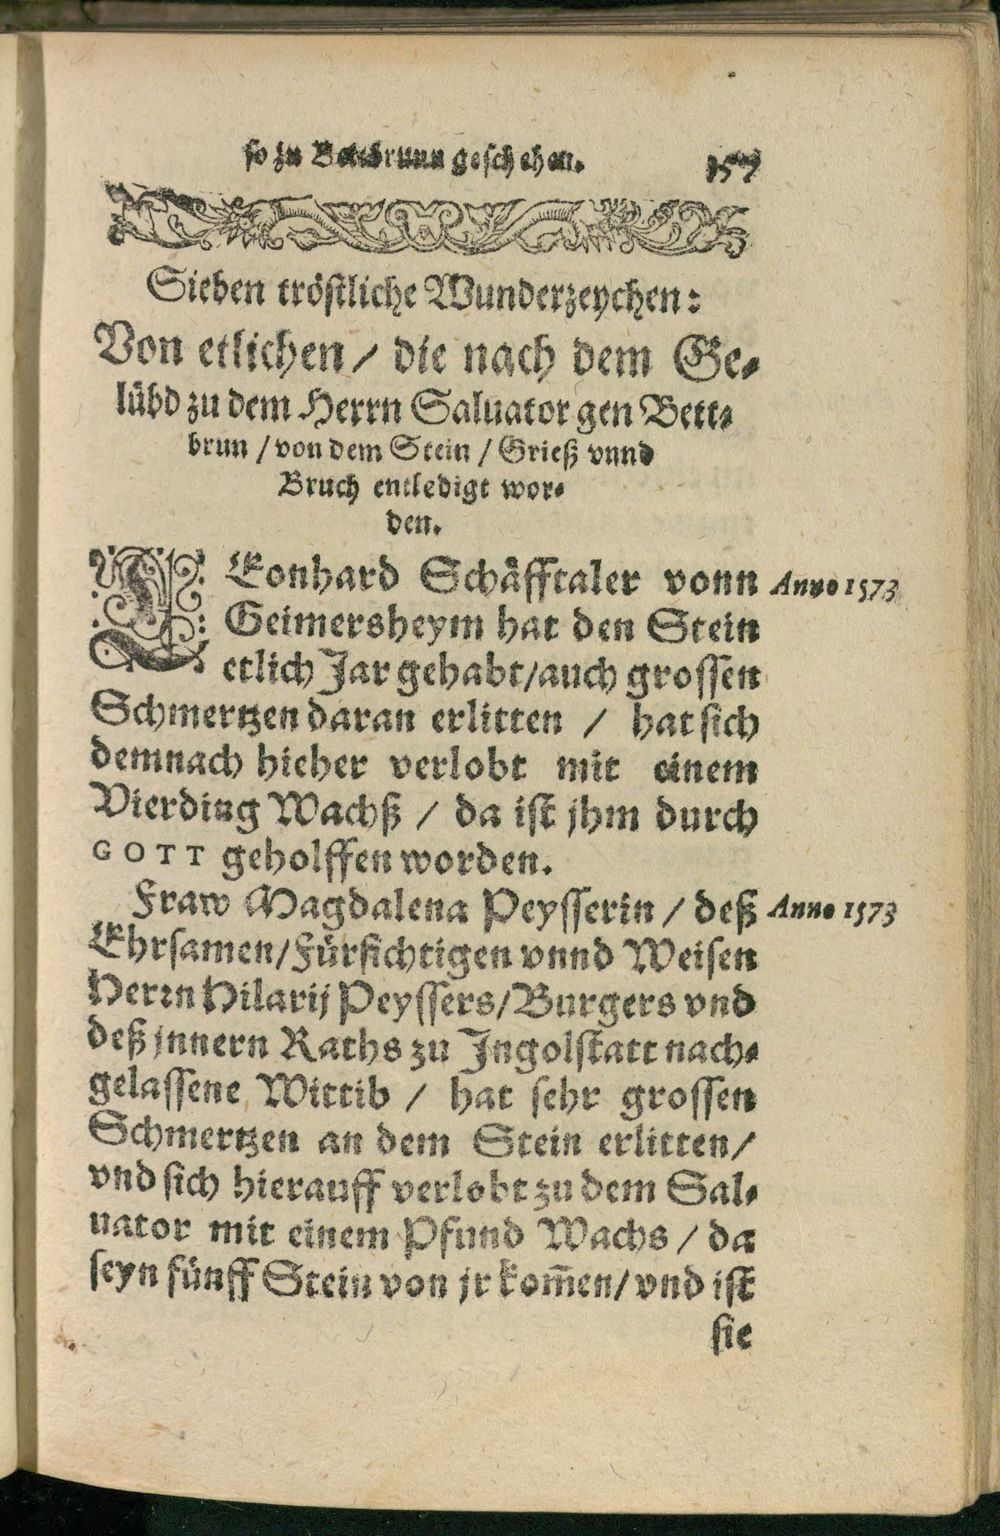 so zu Bettbrunn geschehen. 157
Sieben tröstliche Wunderzeychen:
Von etlichen / die nach dem Ge-
lübd zu dem Herrn Saluator gen Bett-
brun / von dem Stein / Grieß vnnd
Bruch entledigt wor-
den.
LEonhard Schäfftaler vonn Anno 1573
Geimersheym hat den Stein
etlich Jar gehabt/auch grossen
Schmertzen daran erlitten / hat sich
demnach hieher verlobt mit einem
Vierding Wachß / da ist jhm durch
GOTT geholffen worden.
Fraw Magdalena Peysserin / deß Anno 1573
Ehrsamen/Fürsichtigen vnnd Weisen
Herrn Hilarij Peyssers/Burgers vnd
deß jnnern Raths zu Ingolstatt nach-
gelassene Wittib / hat sehr grossen
Schmertzen an dem Stein erlitten/
vnd sich hierauff verlobt zu dem Sal-
uator mit einem Pfund Wachs / da
seyn fünff Stein von jr kom̄en/vnd ist
sie